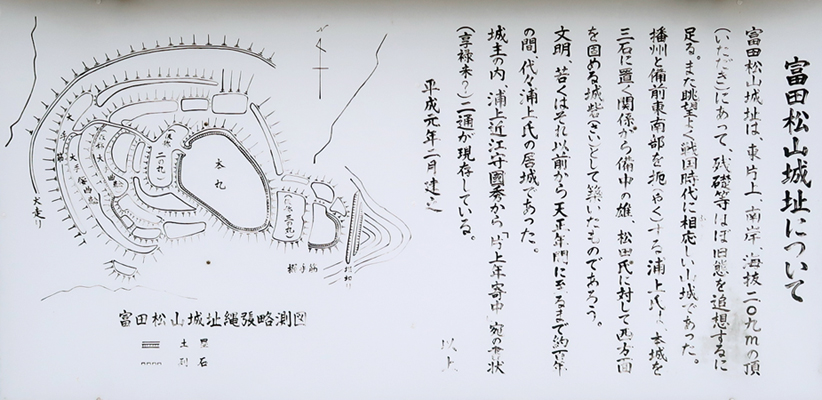 富田松山城址について
富田松山城址は、東片上、南岸、海抜二〇九mの頂
(いただき)にあって、残礎等ほぼ旧態を追想するに
足る。また眺望よく戦国時代に相応しい山城であった。
播州と備前東南部を扼(やく)する浦上氏が、本城を
三石に置く関係から備中の雄、松田氏に対して西方面
を固める城砦(さい)として築いたものであろう。
文明、若くはそれ以前から天正年間に至るまで約百年
の間、代々浦上氏の居城であった。
城主の内、浦上近江守國秀から「片上年寄中」宛の書状
(享禄来?)二通が現存している。
平成元年二月建之
以上
本丸
二の丸
三の丸
犬走り
搦手筋
富田松山城址縄張略測図
土塁
列石